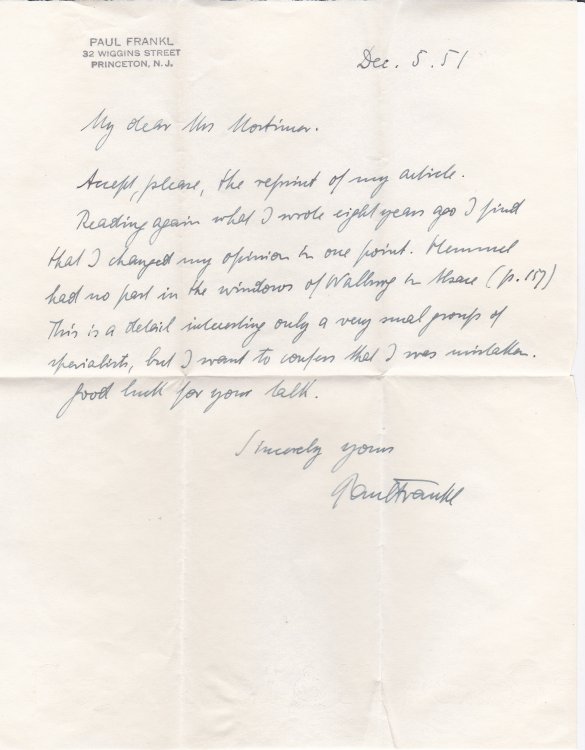 PAUL FRANKL
32 WIGGINS STREET
PRINCETON, N. J.
Dec. 5. 51
My dear Mrs Mortimer.
Accept, please, the reprint of my article.
Reading again what I wrote eight years ago I find
that I changed my opinion in one point. Hemmel
had no part in the windows of Walburg in Alsace (p. 157)
This is a detail interesting only a very small group of
specialists, but I want to confess that I was mistaken.
Good luck for your talk.
Sincerely yours
Paul Frankl